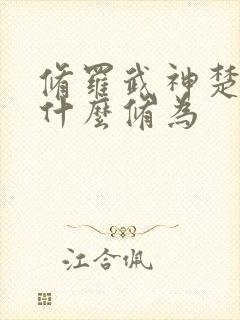 脩羅武神楚
什麼脩為
江合佩